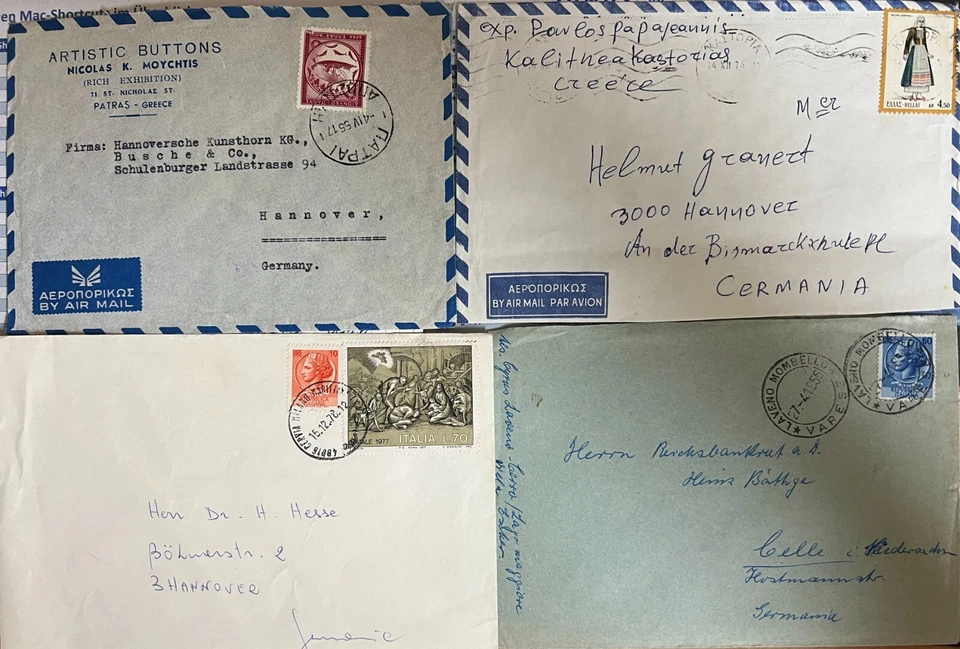 en Mac-Shortcuts im Überblick
ARTISTIC BUTTONS
NICOLAS K. MOYCHTIS
(RICH EXHIBITION)
71 ST. NICHOLAZ ST.
PATRAS - GREECE
ΠΑΤΡΑΙ
-4 IV 56 17
Firma: Hannoversche Kunsthorn KG.,
Busche & Co.,
Schulenburger Landstrasse 94
Hannover,
Germany.
ΑΕΡΟΠΟΡΙΚΩΣ
BY AIR MAIL
exp. Pavlos papajeannis-
Kalithea Kastorias
Greece
ΕΛΛΑΣ-HELLAS
4.50
Helmut Granert
3000 Hannover
An der Bismarckschule
CERMANIA
ΑΕΡΟΠΟΡΙΚΩΣ
BY AIR MAIL PAR AVION
10
48016 CERVIA MILANO MARITTIMA
15.12.78.12
NATALE 1977 ITALIA L.70
Herr Dr. H. Hesse
Böhmerstr. 2
3 HANNOVER
60
LAVENO MOMBELLO
VARESE
Herrn Reichsbankrat a.D.
Heinz Bäthge
Celle
Germania